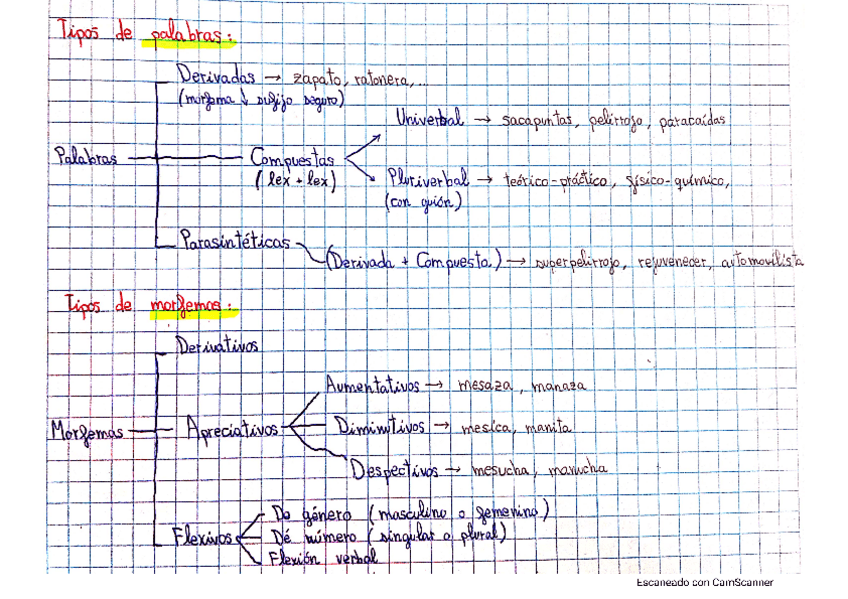 Tipos de palabras:
Derivadas → zapato, ratonera,...
(morfema ↓ sufijo seguro)
Univerbal → sacapuntas, pelirrojo, paracaídas
Palabras
Compuestas
(lex + lex)
Pluriverbal → teórico-práctico, físico-químico,
(con guión)
Parasintéticas
(Derivada + Compuesta.) → superpelirrojo, rejuvenecer, automovilista
Tipos de morfemas:
Derivativos
Aumentativos → mesaza, manaza
Morfemas
Apreciativos
Diminitivos → mesica, manita
Despectivos → mesucha, manucha
De género (masculino o femenino)
Flexivos
Dé número (singular o plural)
Flexión verbal
Escaneado con CamScanner